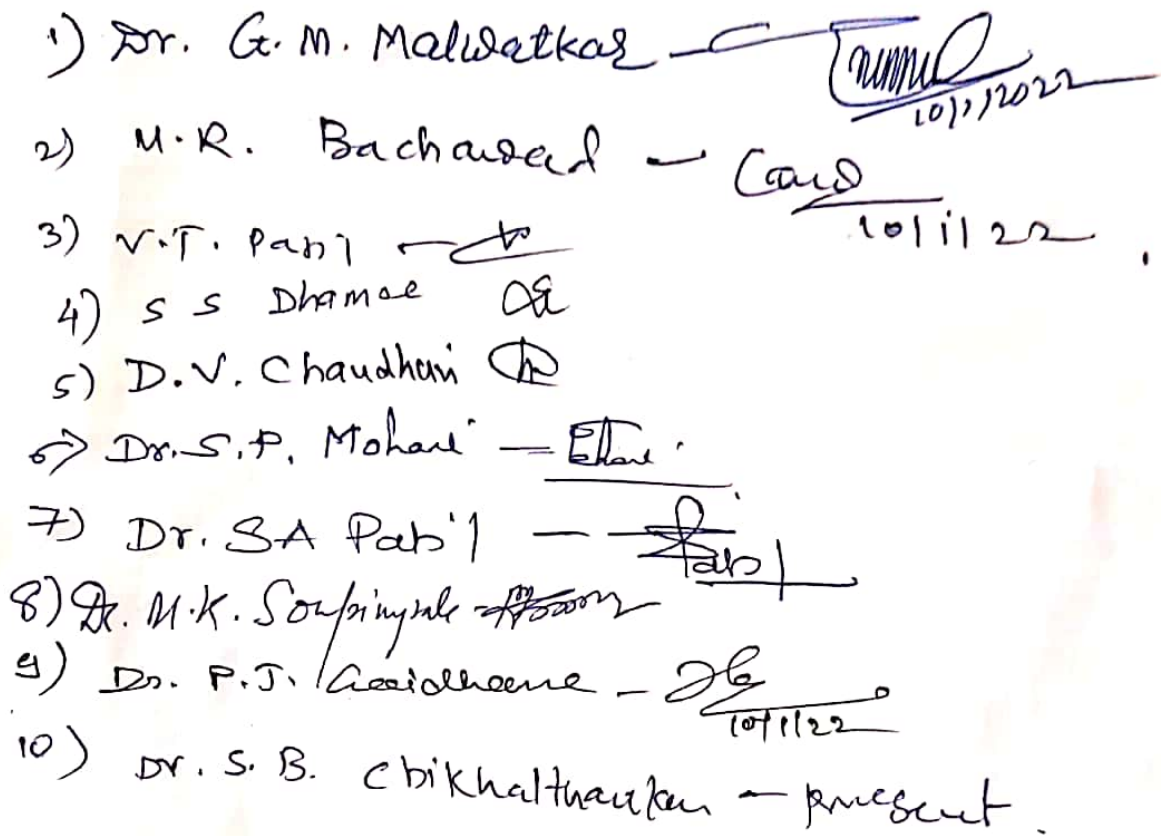 1) Dr. G. M. Malwatkar - 10/1/2022
2) M.R. Bachawad - 10/1/22
3) V.T. Patil -
4) S S Dhamse
5) D.V. Chaudhari
6) Dr. S.P. Mohani -
7) Dr. SA Patil - Patil
8) Dr. M.K.
9) Dr. P.J. - 10/1/22
10) Dr. S. B. Chikhalthankar - present.